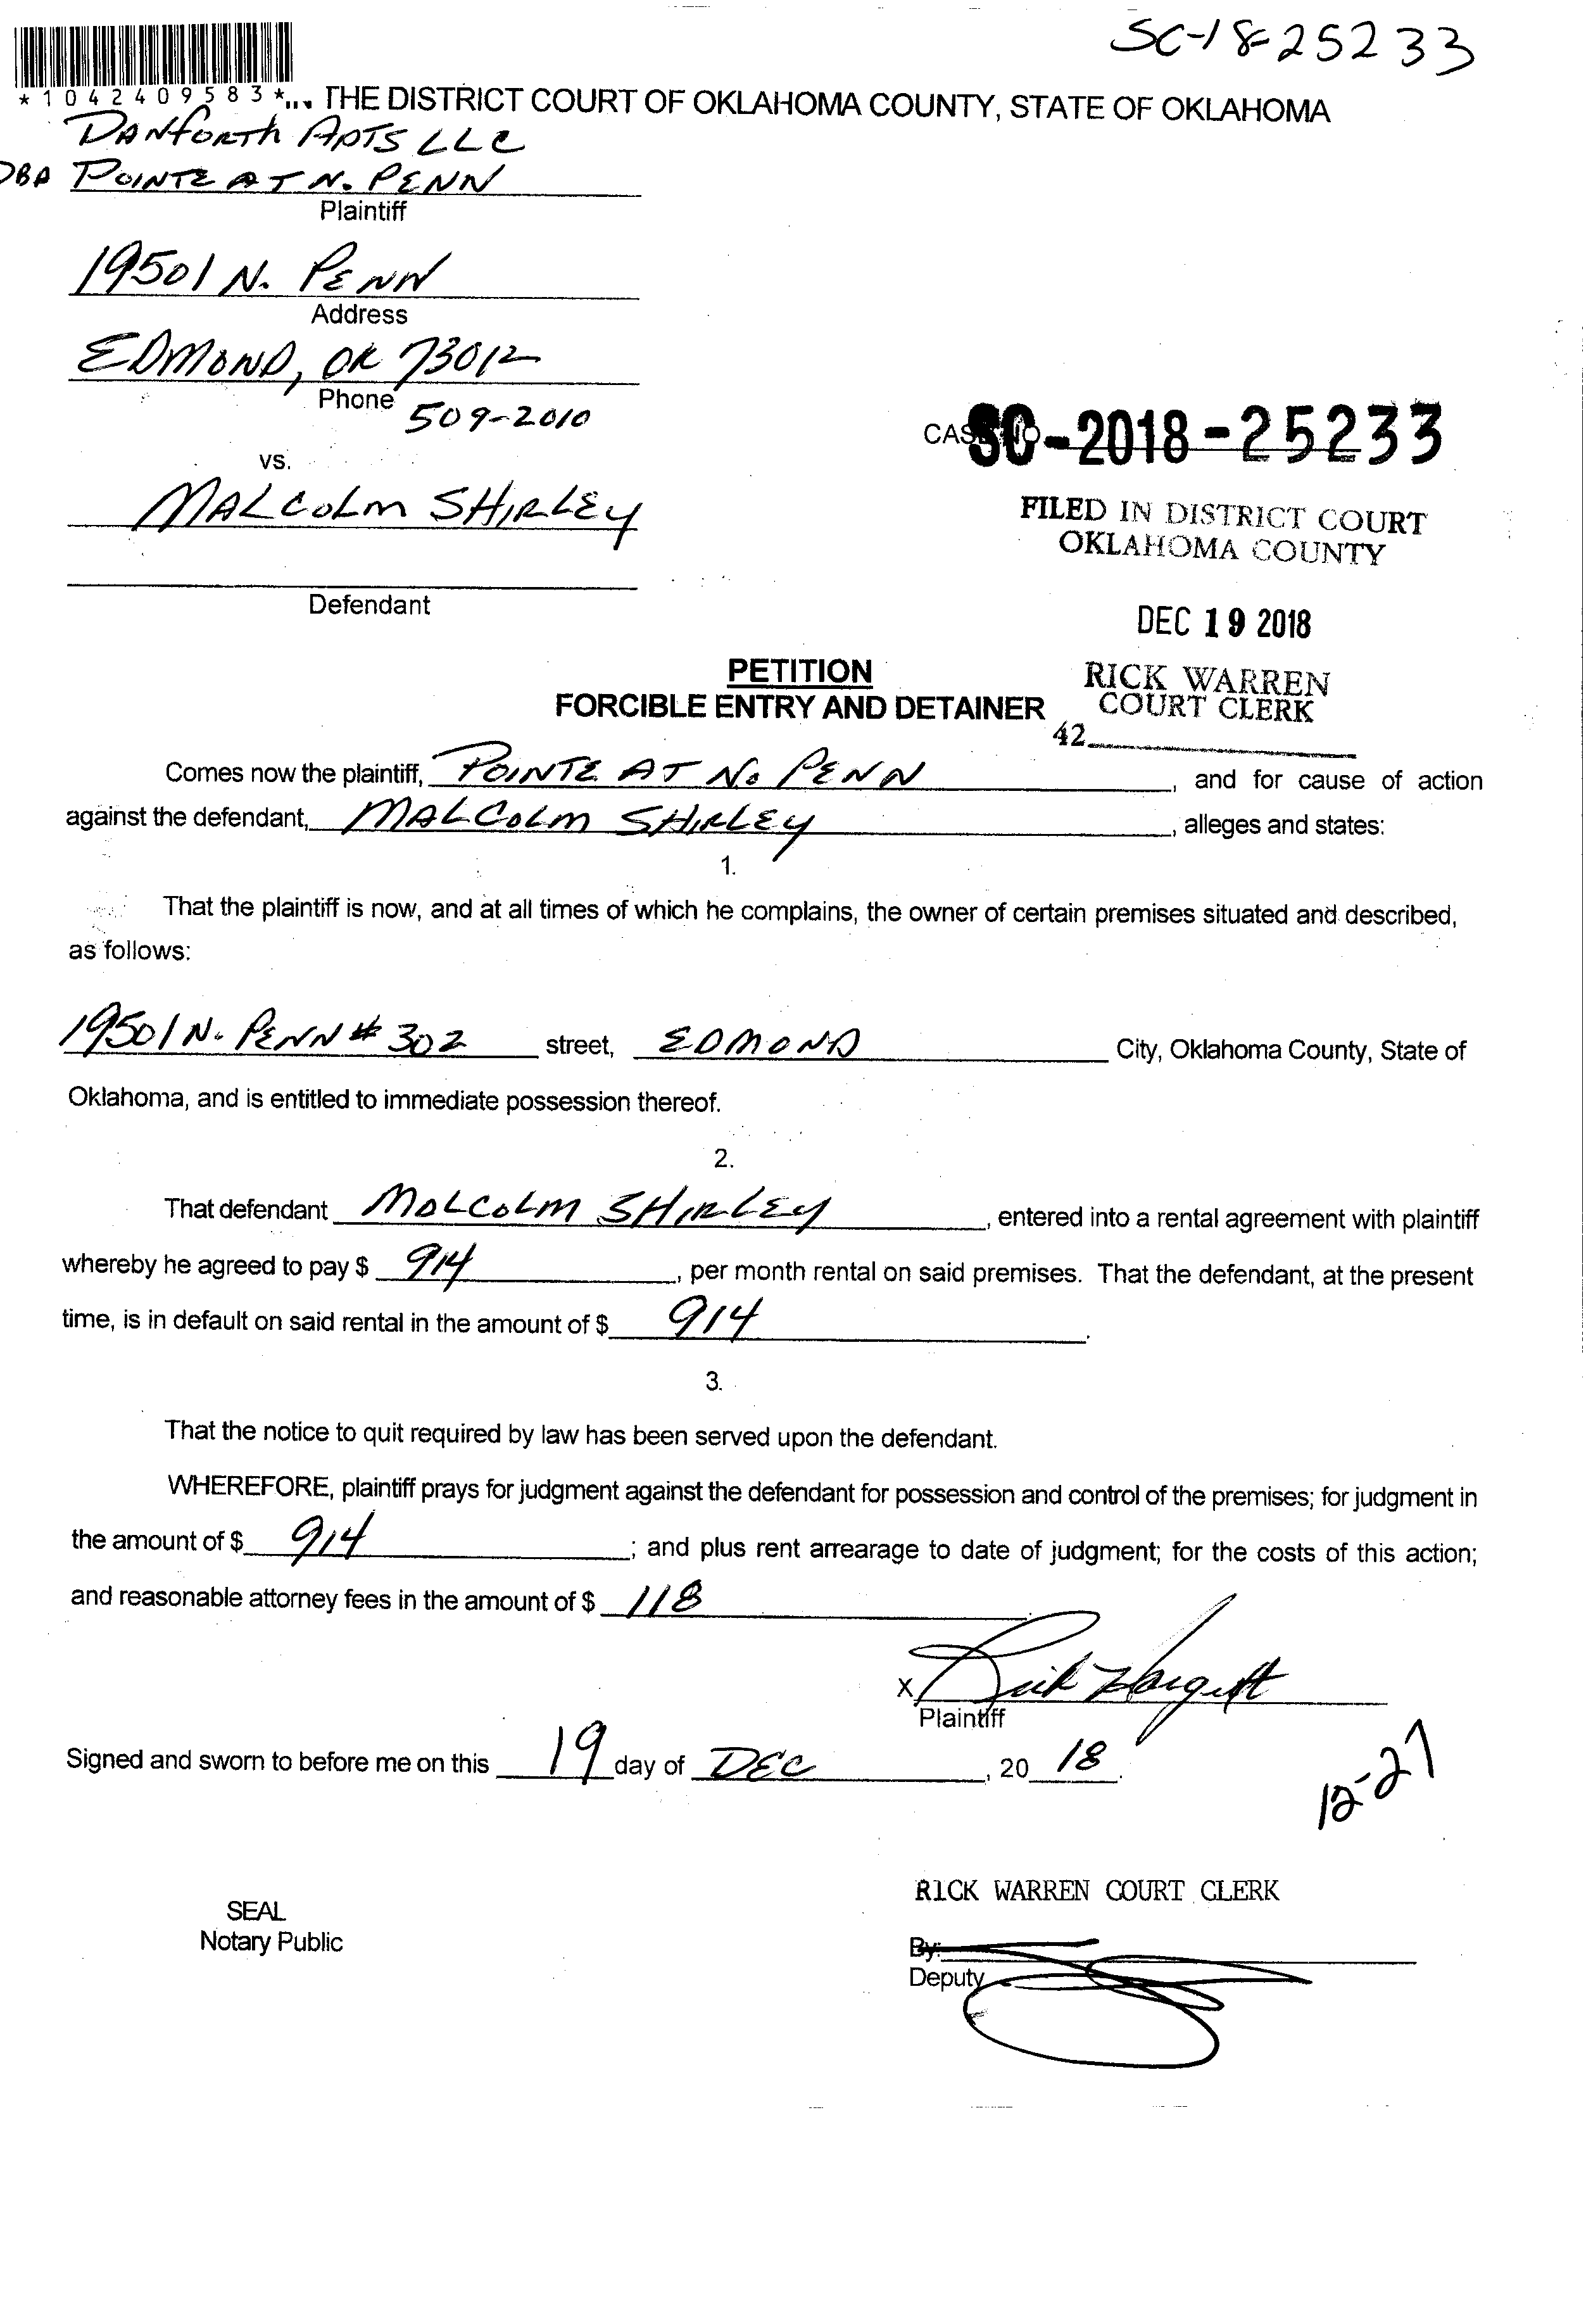 SC-18-25233
*1042409583*
THE DISTRICT COURT OF OKLAHOMA COUNTY, STATE OF OKLAHOMA
DANFORTH APTS LLC
DBA POINTE AT N. PENN
Plaintiff
19501 N. PENN
Address
EDMOND, OK 73012
Phone 509-2010
CAS SC-2018-25233
vs.
MALCOLM SHIRLEY
FILED IN DISTRICT COURT
OKLAHOMA COUNTY
Defendant
DEC 19 2018
PETITION
FORCIBLE ENTRY AND DETAINER
RICK WARREN
COURT CLERK
42
Comes now the plaintiff, POINTE AT N. PENN, and for cause of action
against the defendant, MALCOLM SHIRLEY, alleges and states:
1.
That the plaintiff is now, and at all times of which he complains, the owner of certain premises situated and described,
as follows:
19501 N. PENN # 302 street, EDMOND City, Oklahoma County, State of
Oklahoma, and is entitled to immediate possession thereof.
2.
That defendant MOLCOLM SHIRLEY, entered into a rental agreement with plaintiff
whereby he agreed to pay $ 914, per month rental on said premises. That the defendant, at the present
time, is in default on said rental in the amount of $ 914.
3.
That the notice to quit required by law has been served upon the defendant.
WHEREFORE, plaintiff prays for judgment against the defendant for possession and control of the premises; for judgment in
the amount of $ 914; and plus rent arrearage to date of judgment; for the costs of this action;
and reasonable attorney fees in the amount of $ 118.
X Rick Hargett
Plaintiff
Signed and sworn to before me on this 19 day of DEC, 20 18.
12-27
RICK WARREN COURT CLERK
SEAL
Notary Public
By:
Deputy